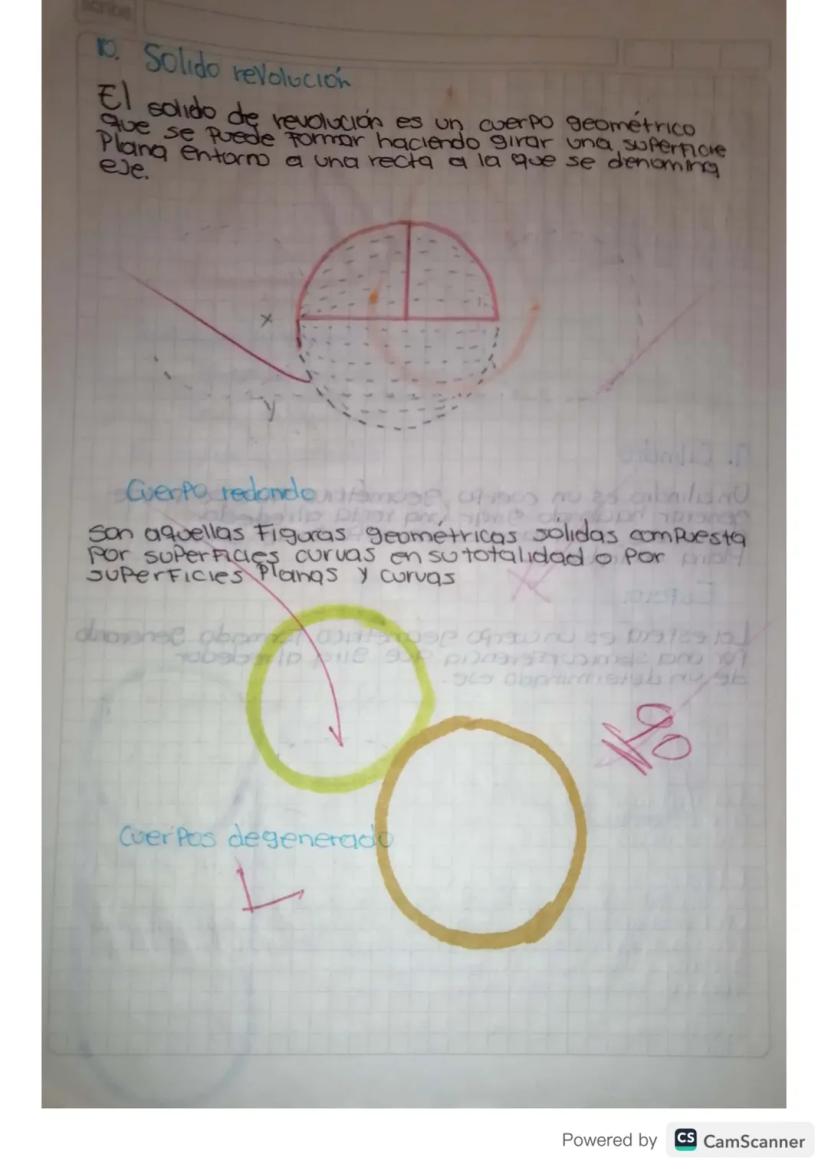 10. Solido revolución
El solido de revolución es un cuerpo geométrico
que se puede formar haciendo girar una superficie
Plana entorno a una recta a la que se denomina
eje.
x
y
Cuerpo redondo
son aquellas Figuras geométricas sólidas compuesta
por superficies curvas en su totalidad o por
superficies Planas y curvas
Cuerpos degenerado
Powered by CS CamScanner